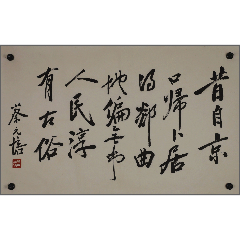 昔自京
口归卜居
得郄曲
地偏无市
人民淳
有古俗
蔡元培